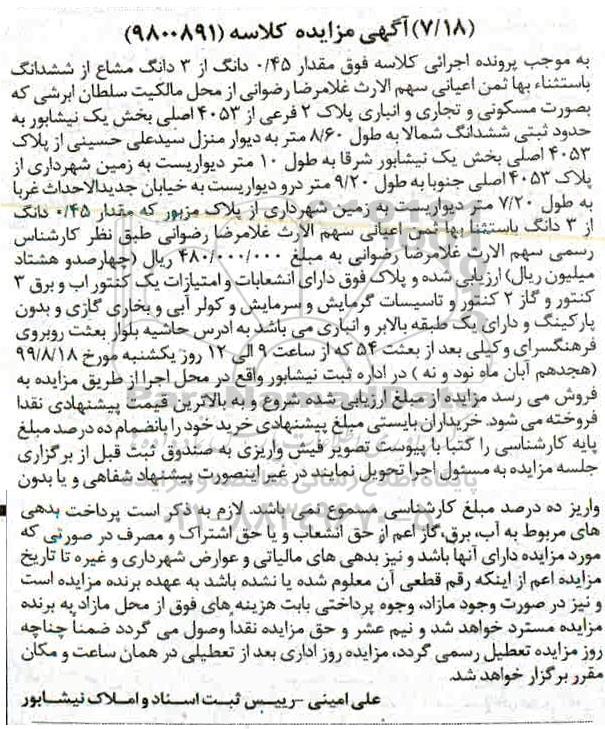 (۷/۱۸) آگهی مزایده کلاسه (۹۸۰۰۸۹۱)
به موجب پرونده اجرائی کلاسه فوق مقدار ۰/۴۵ دانگ از ۳ دانگ مشاع از ششدانگ
باستثناء بها ثمن اعیانی سهم الارث غلامرضا رضوانی از محل مالکیت سلطان ابرشی که
بصورت مسکونی و تجاری و انباری پلاک ۲ فرعی از ۴۰۵۳ اصلی بخش یک نیشابور به
حدود ثبتی ششدانگ شمالا به طول ۸/۶۰ متر به دیوار منزل سیدعلی حسینی از پلاک
۴۰۵۳ اصلی بخش یک نیشابور شرقا به طول ۱۰ متر دیواریست به زمین شهرداری از
پلاک ۴۰۵۳ اصلی جنوبا به طول ۹/۲۰ متر درو دیواریست به خیابان جدیدالاحداث غربا
به طول ۷/۲۰ متر دیواریست به زمین شهرداری از پلاک مزبور که مقدار ۰/۴۵ دانگ
از ۳ دانگ باستثنا بها ثمن اعیانی سهم الارث غلامرضا رضوانی طبق نظر کارشناس
رسمی سهم الارث غلامرضا رضوانی به مبلغ ۴۸۰/۰۰۰/۰۰۰ ریال (چهارصدو هشتاد
میلیون ریال) ارزیابی شده و پلاک فوق دارای انشعابات و امتیازات یک کنتور اب و برق ۳
کنتور و گاز ۲ کنتور و تاسیسات گرمایش و سرمایش و کولر آبی و بخاری گازی و بدون
پارکینگ و دارای یک طبقه بالابر و انباری می باشد به ادرس حاشیه بلوار بعثت روبروی
فرهنگسرای وکیلی بعد از بعثت ۵۴ که از ساعت ۹ الی ۱۲ روز یکشنبه مورخ ۹۹/۸/۱۸
(هجدهم آبان ماه نود و نه ) در اداره ثبت نیشابور واقع در محل اجرا از طریق مزایده به
فروش می رسد مزایده از مبلغ ارزیابی شده شروع و به بالاترین قیمت پیشنهادی نقدا
فروخته می شود. خریداران بایستی مبلغ پیشنهادی خرید خود را بانضمام ده درصد مبلغ
پایه کارشناسی را کتبا با پیوست تصویر فیش واریزی به صندوق ثبت قبل از برگزاری
جلسه مزایده به مسئول اجرا تحویل نمایند در غیر اینصورت پیشنهاد شفاهی و یا بدون
واریز ده درصد مبلغ کارشناسی مسموع نمی باشد. لازم به ذکر است پرداخت بدهی
های مربوط به آب، برق،گاز اعم از حق انشعاب و یا حق اشتراک و مصرف در صورتی که
مورد مزایده دارای آنها باشد و نیز بدهی های مالیاتی و عوارض شهرداری و غیره تا تاریخ
مزایده اعم از اینکه رقم قطعی آن معلوم شده یا نشده باشد به عهده برنده مزایده است
و نیز در صورت وجود مازاد، وجوه پرداختی بابت هزینه های فوق از محل مازاد به برنده
مزایده مسترد خواهد شد و نیم عشر و حق مزایده نقداً وصول می گردد ضمناً چناچه
روز مزایده تعطیل رسمی گردد، مزایده روز اداری بعد از تعطیلی در همان ساعت و مکان
مقرر برگزار خواهد شد.
علی امینی -رییس ثبت اسناد و املاک نیشابور